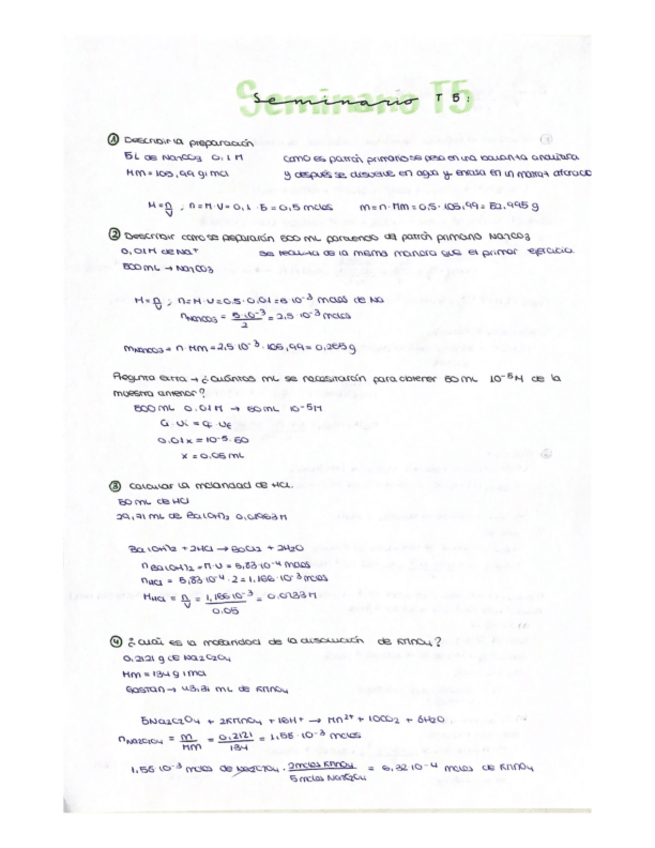 Seminario T5:
① Describir la preparación
5L de Na2CO3 0,1 M como es patrón primario se pesa en una balanza analítica
Mm = 105,99 g/mol y después se disuelve en agua y enrasa en un matraz aforado
M = n/V ; n = M·V = 0,1 · 5 = 0,5 moles m = n·Mm = 0,5·105,99 = 52,995 g
② Describir como se prepararán 500 mL partiendo del patrón primario Na2CO3
0,01M de Na+ se realiza de la misma manera que el primer ejercicio
500 mL → Na2CO3
M = n/V ; n = M·V = 0,5·0,01 = 5·10-3 moles de Na
nNa2CO3 = 5·10-3/2 = 2,5·10-3 moles
mNa2CO3 = n·Mm = 2,5·10-3·105,99 = 0,265 g
Pregunta extra → ¿Cuántos mL se necesitarán para obtener 50 mL 10-5M de la
muestra anterior?
500 mL 0,01M → 50 mL 10-5M
Ci·Vi = Cf·Vf
0,01x = 10-5·50
x = 0,05 mL
③ Calcular la molaridad de HCl.
50 mL de HCl
29,71 mL de Ba(OH)2 0,01963M
Ba(OH)2 + 2HCl → BaCl2 + 2H2O
nBa(OH)2 = M·V = 5,83·10-4 moles
nHCl = 5,83·10-4·2 = 1,166·10-3 moles
MHCl = n/V = 1,166·10-3/0,05 = 0,0233M
④ ¿Cuál es la molaridad de la disolución de KMnO4?
0,2121 g de Na2C2O4
Mm = 134 g/mol
Gastan → 43,31 mL de KMnO4
5Na2C2O4 + 2KMnO4 + 16H+ → Mn2+ + 10CO2 + 8H2O
nNa2C2O4 = m/Mm = 0,2121/134 = 1,58·10-3 moles
1,58·10-3 moles de Na2C2O4 · 2moles KMnO4/5moles Na2C2O4 = 6,32·10-4 moles de KMnO4